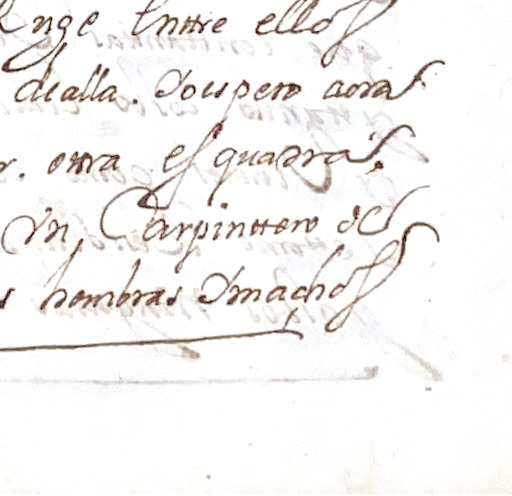 enttre ellos
de alla. Y ocupero aoras
r. ottra esquadra,
Un Carpinttero de
s hembras Y machos